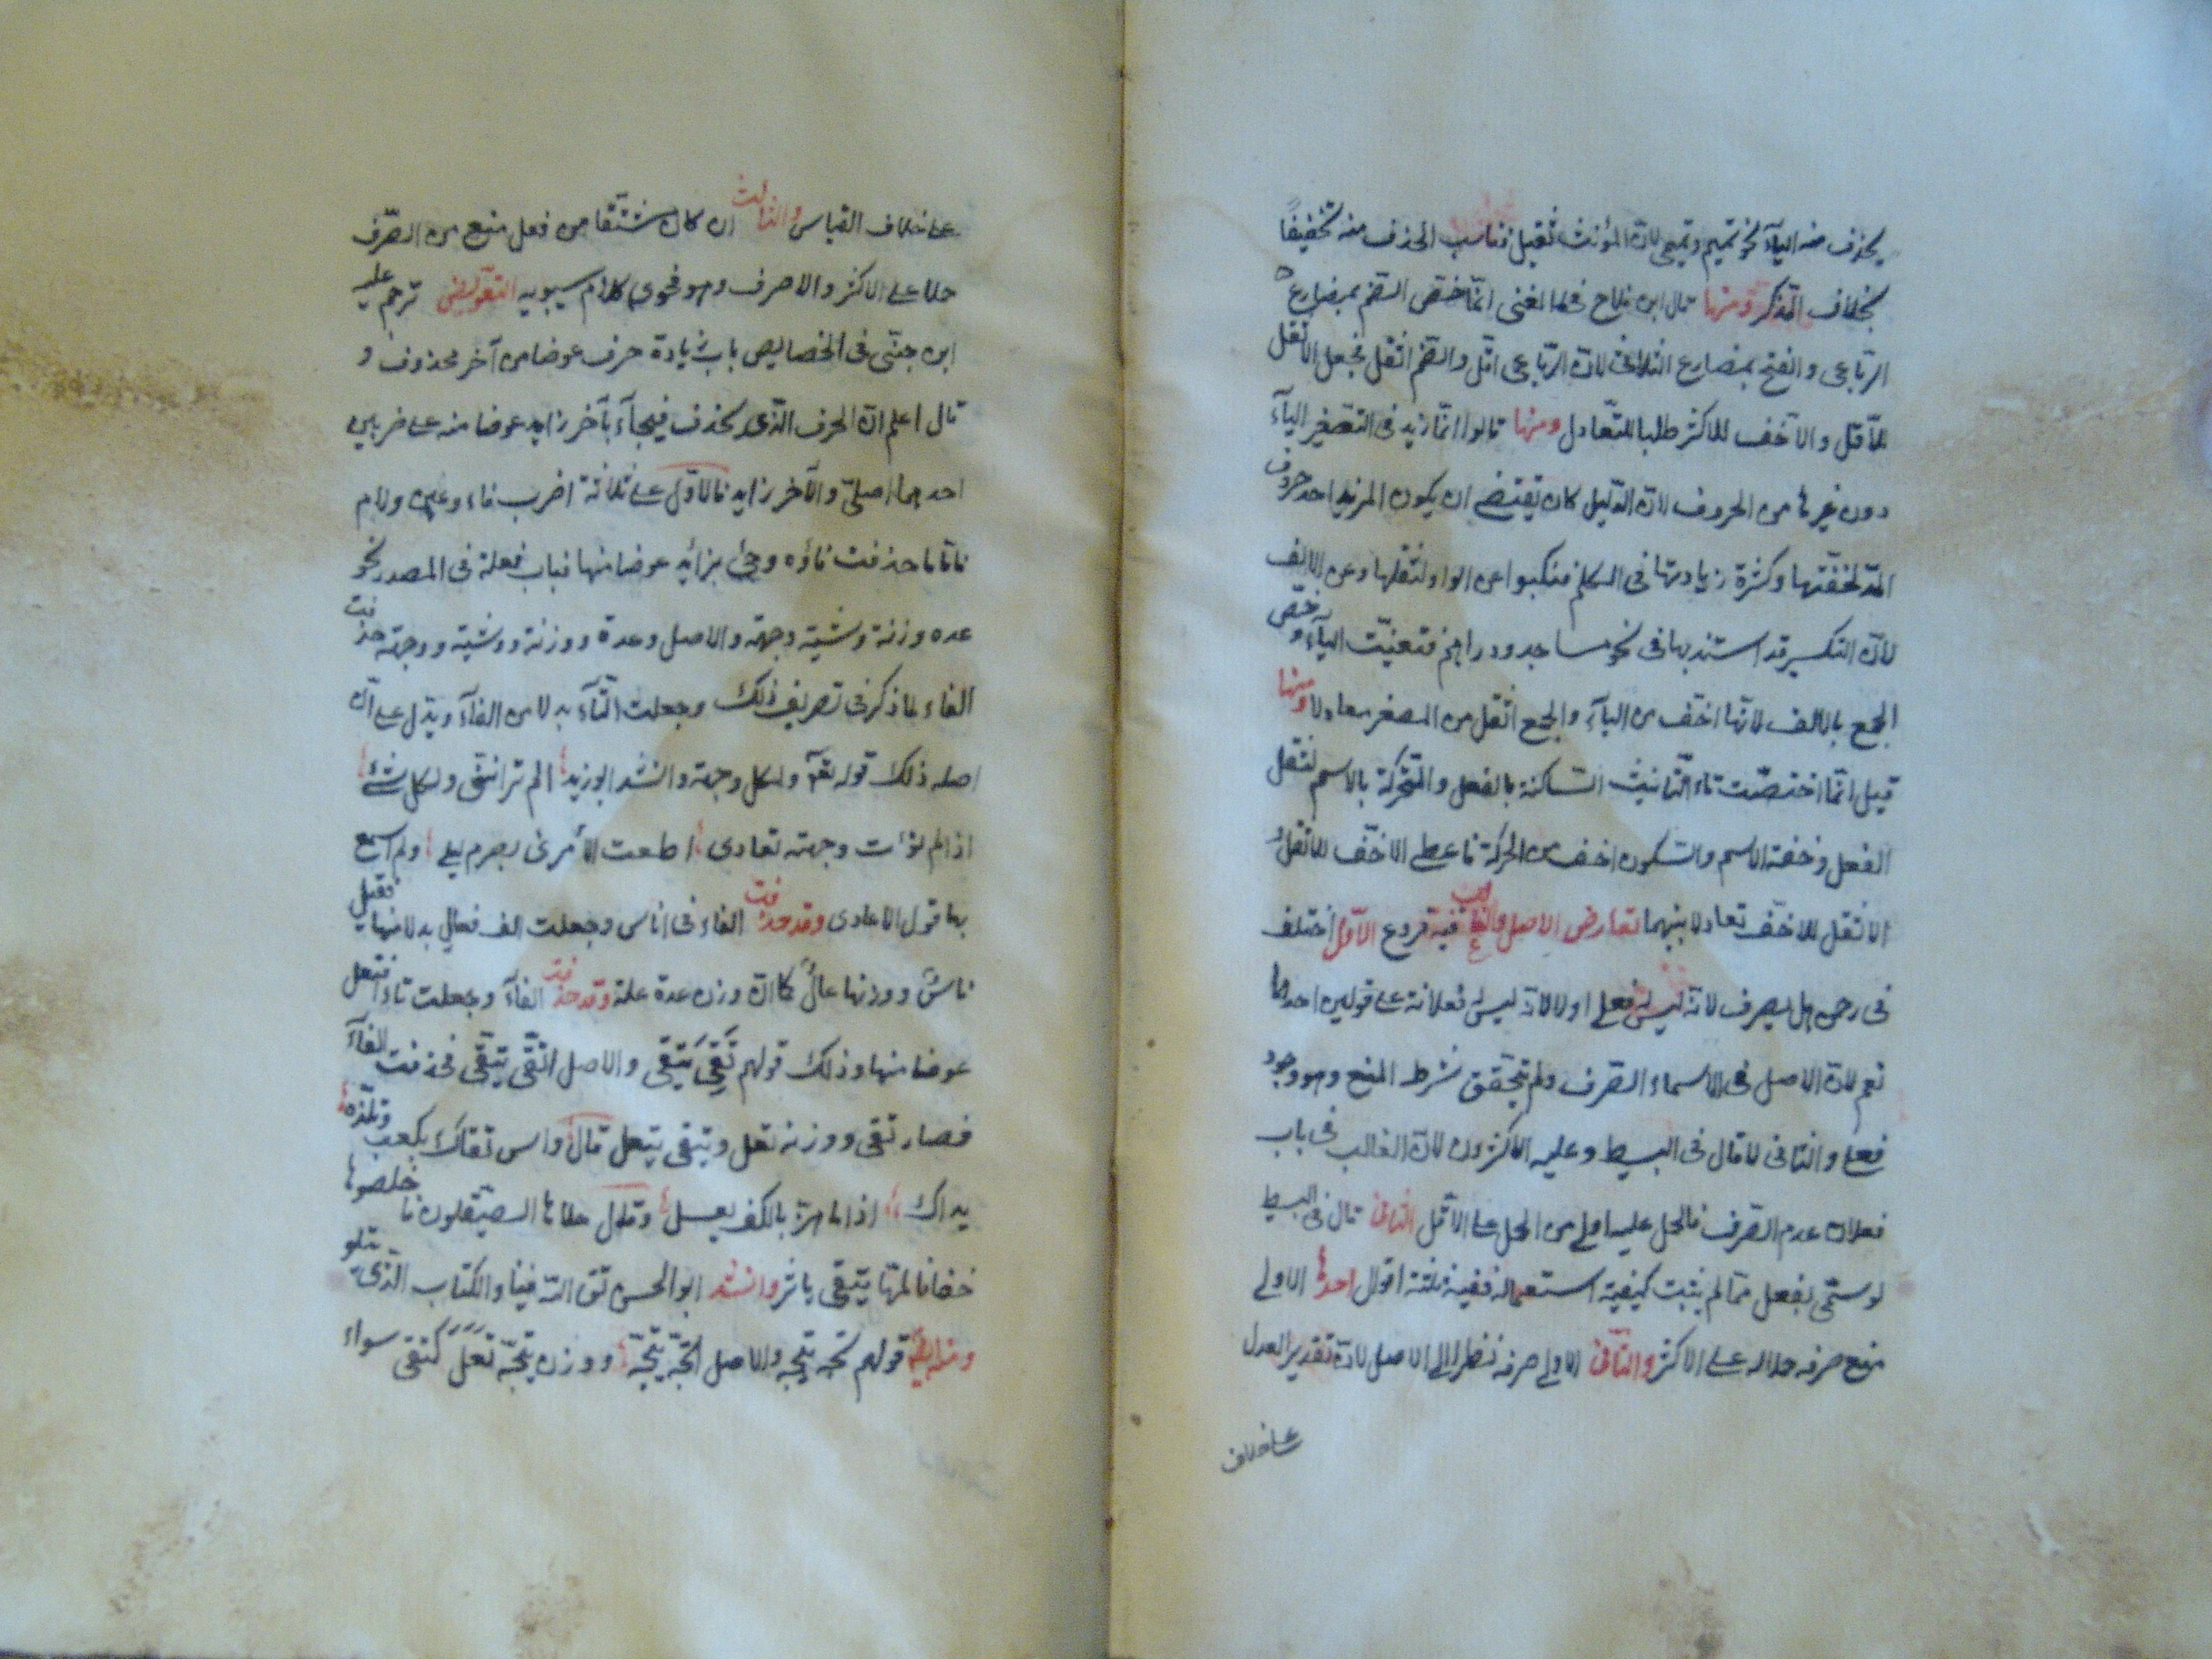 يحذف منه الياء نحو تميم وتميمى لان المؤنث ثقيل فناسب الحذف منه تخفيفاً
بخلاف المذكر ومنها قال ابن فلاح فى المغنى انما اختص الضم بمضارع
الرباعى والفتح بمضارع الثلاثى لان الرباعى اقل والضم اثقل فجعل الاثقل
للاقل والاخف للاكثر طلبا للتعادل ومنها قالوا انما زيد فى التصغير الياء
دون غيرها من الحروف لان الدليل كان يقتضى ان يكون المزيد احد حروف
المد لخفتها وكثرة زيادتها فى الكلم فنكبوا عن الواو لثقلها وعن الالف
لان التكسير قد استند بها فى نحو مساجد ودراهم فتعينت الياء وخص
الجمع بالالف لانها اخف من الياء والجمع اثقل من المصغر معادلا ومنها
قيل انما اختصت تاء التانيث الساكنة بالفعل والمتحركة بالاسم لثقل
الفعل وخفة الاسم والسكون اخف من الحركة فاعطى الاخف للاثقل و
الاثقل للاخف تعادلا بينهما تعارض الاصل والغالب فيه فروع الاول اختلف
فى رحمن هل يصرف لانه ليس له فعلى او لا لانه ليس له فعلانة على قولين احدهما
نعم لان الاصل فى الاسماء الصرف ولم يتحقق شرط المنع وهو وجود
فعلى والثانى لا قال فى البسيط وعليه الاكثرون لان الغالب فى باب
فعلان عدم الصرف فالحمل عليه اولى من الحمل على الاقل الثانى قال فى البسيط
لو سمى بفعل مما لم يثبت كيفية استعماله ففيه ثلثة اقوال احدها الاولى
منع صرفه حملا له على الاكثر والثانى الاولى صرفه نظرا الى الاصل لان تقدير العدل
على خلاف
على خلاف القياس والثالث ان كان مشتقا من فعل منع من الصرف
حملا على الاكثر والا صرف وهو فحوى كلام سيبويه التعويض ترجم عليه
ابن جنى فى الخصايص باب زيادة حرف عوضا من آخر محذوف و
قال اعلم ان الحرف الذى يحذف فيجاء بآخر زايد عوضا منه على ضربين
احدهما اصلى والآخر زايد فالاول على ثلاثة اضرب فاء وعين ولام
فاما ما حذفت فاؤه وجئ بزائد عوضا منها فباب فعلة فى المصدر نحو
عدة وزنة وشية وجهة والاصل وعدة ووزنة ووشية ووجهة حذفت
الفاء لما ذكر فى تصريف ذلك وجعلت التاء بدلا من الفاء ويدل على ان
اصله ذلك قوله تعالى ولكل وجهة وانشد ابو زيد الم تر اننى ولكل شئ
اذا لم تؤت وجهته تعادى اطعت الآمرى بصرم ليلى ولم اسمع
بها قول الاعادى وقد حذفت الفاء فى اناس وجعلت الف فعال بدلا منها فقيل
ناسٌ ووزنها عالٌ كما ان وزن عدة علة وقد حذفت الفاء وجعلت تاء افتعل
عوضا منها وذلك قولهم تَقَى يَتَقى والاصل اتّقى يتّقى فحذفت الفاء
فصار تقى ووزنه تعل ويتقى يتعل قال اوس تقاك بكعب وتلذه
يداك اذا ما هز بالكف يعسل وقال جلاها الصيقلون فاخلصوها
خفافا كلها يتقى باثر وانشد ابو الحسن تق الله فينا والكتاب الذى تتلو
ومنه ايضا قولهم تجه يتجه والاصل اتجه يتجه ووزن يتجه تعل كتقى سواء